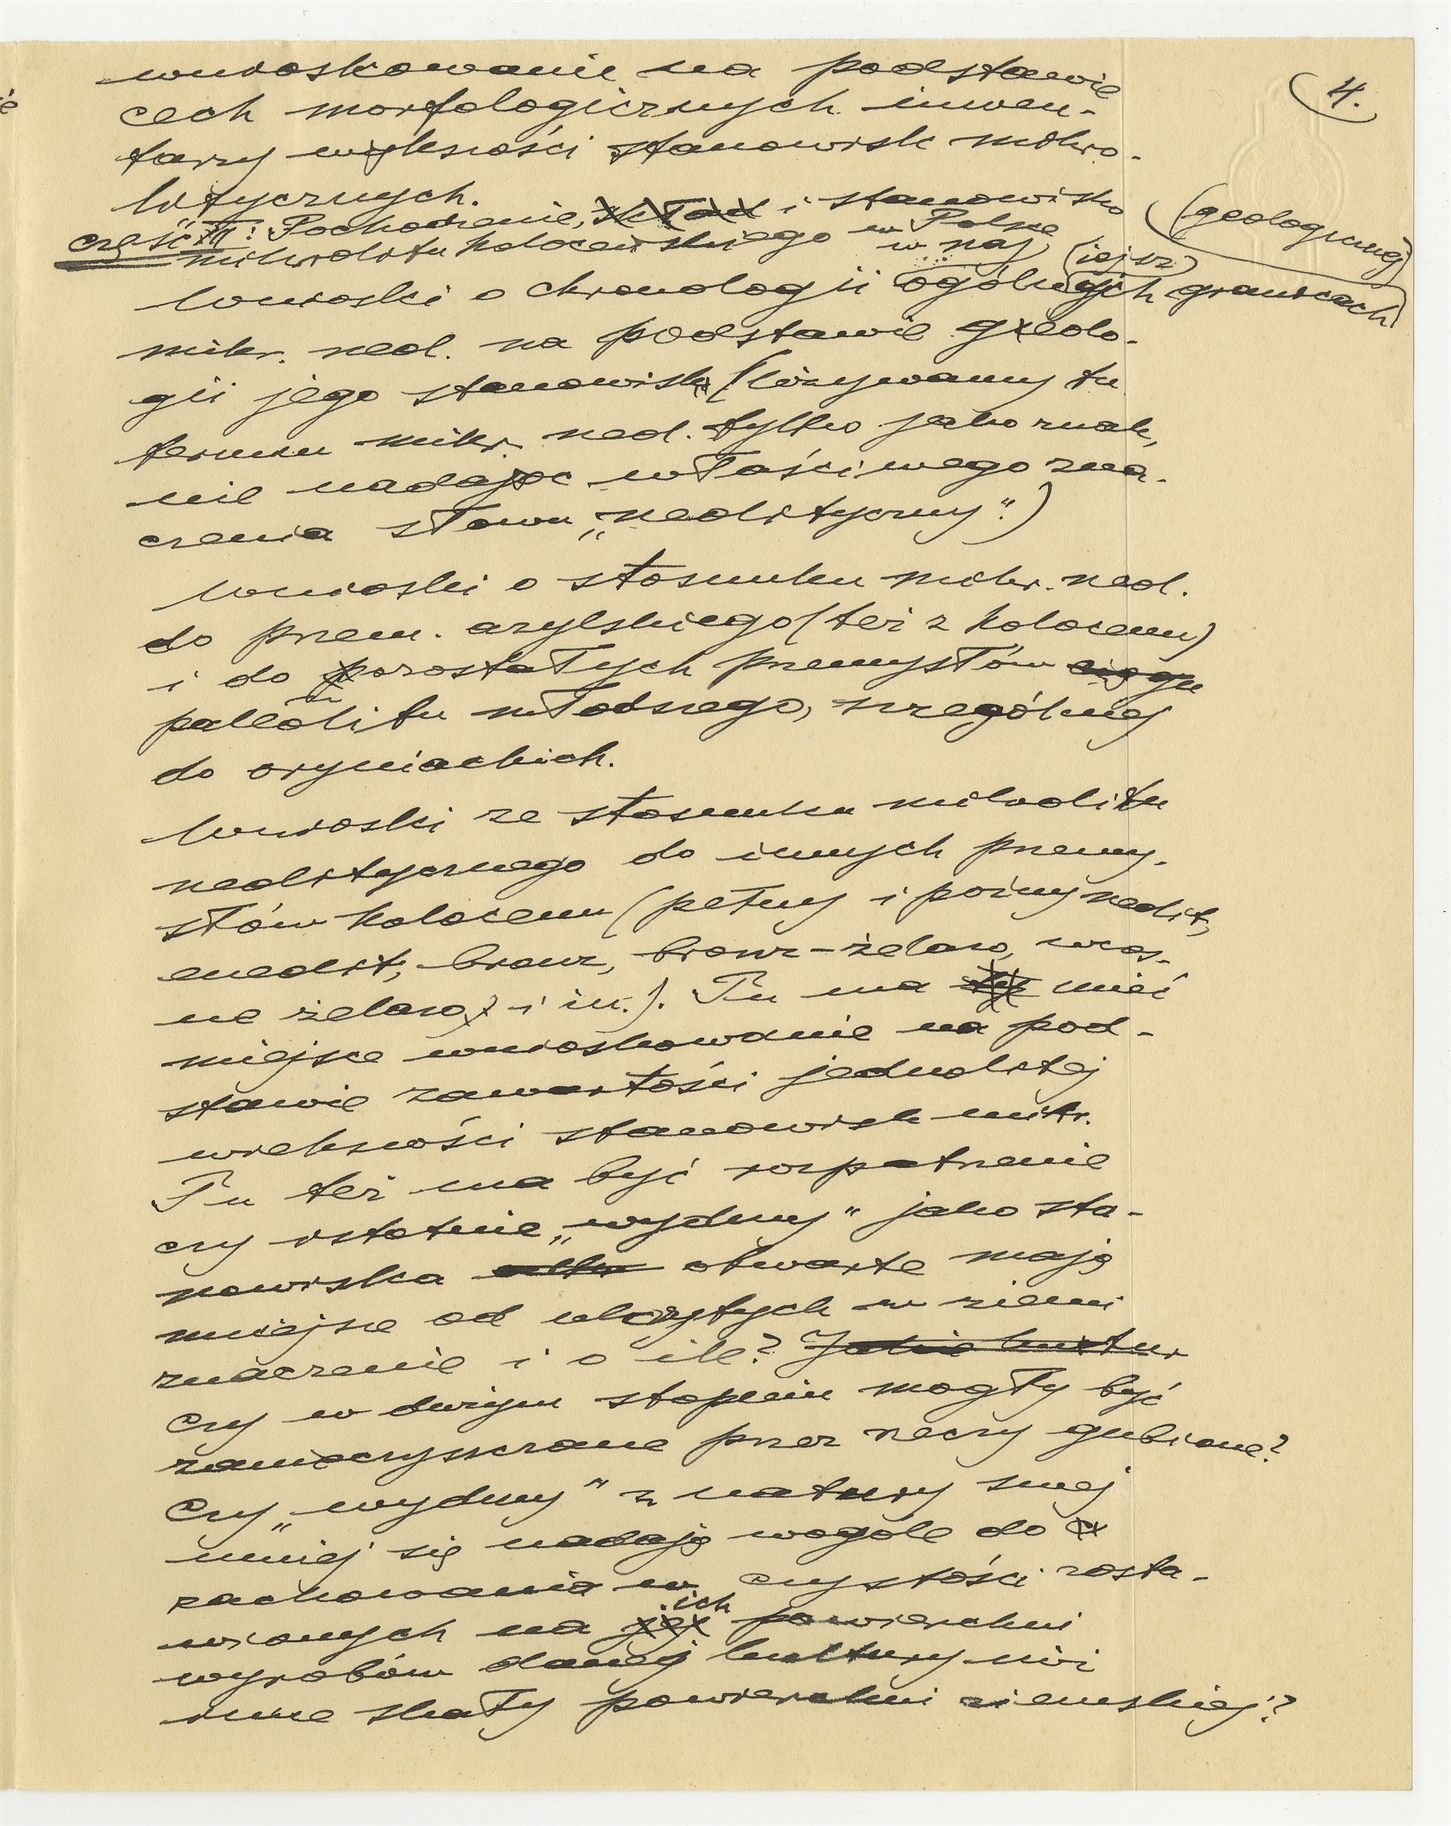 4.
wnioskowanie na podstawie
cech morfologicznych inwen-
tarzy większości stanowisk mikro-
litycznych.
część III: Pochodzenie, i stanowisko
mikrolitu holoceńskiego w Polsce
w naj (geologicznej)
Wnioski o chronologii ogólniejszych granicach
mikr. neol. na podstawie geolo-
gii jego stanowisk (Używamy tu
termin mikr. neol. tylko jako znak,
nie nadając właściwego zna-
czenia słowu „neolityczny”.)
Wnioski o stosunku mikr. neol.
do przem. azylskiego (też z holocenu)
i do pozostałych przemysłów
paleolitu młodszego, szczególniej
do oryniackich.
Wnioski ze stosunku mikrolitu
neolitycznego do innych przemy-
słów holocenu (pełny i późny neolit,
eneolit, bronz, bronz-żelazo, wczes-
ne żelazo i in.). Tu ma mieć
miejsce wnioskowanie na pod-
stawie zawartości jednolitej
większości stanowisk mikr.
Tu też ma być rozpatrzenie
czy istotnie „wydmy” jako sta-
nowiska otwarte mają
mniejsze od ukrytych w ziemi
znaczenie i o ile?
Czy w dużym stopniu mogły być
zanieczyszczane przez rzeczy gubione?
Czy „wydmy” z natury swej
mniej się nadają wogóle do
zachowania w czystości zosta-
wionych na ich powierzchni
wyrobów danej kultury niż
inne skały powierzchni ziemskiej?